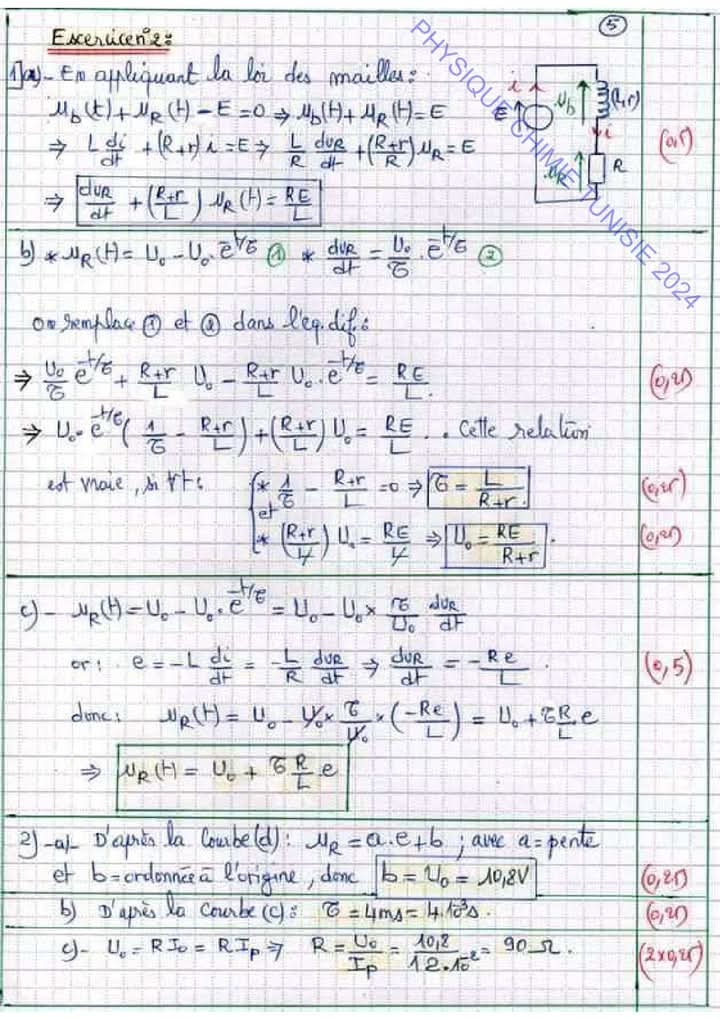 5
Exercice n°2:
1) a) - En appliquant la loi des mailles:
u_b(t) + u_R(t) - E = 0 ⇒ u_b(t) + u_R(t) = E
⇒ L di/dt + (R+r) i = E ⇒ L/R du_R/dt + (R+r/R) u_R = E
(0,5)
⇒ du_R/dt + (R+r/L) u_R(t) = RE/L
i E u_b (L,r) i u_R R
PHYSIQUE CHIMIE TUNISIE 2024
b) * u_R(t) = U₀ - U₀.e^(-t/τ) ① * du_R/dt = U₀/τ . e^(-t/τ) ②
on remplace ① et ② dans l'eq.dif:
⇒ U₀/τ e^(-t/τ) + R+r/L U₀ - R+r/L U₀.e^(-t/τ) = RE/L. (0,25)
⇒ U₀.e^(-t/τ) (1/τ - R+r/L) + (R+r/L) U₀ = RE/L . . Cette relation
est vraie, si ∀t: { * 1/τ - R+r/L = 0 ⇒ τ = L/R+r. (0,25)
et
* (R+r/L) U₀ = RE/L ⇒ U₀ = RE/R+r . (0,25)
c) - u_R(t) = U₀ - U₀.e^(-t/τ) = U₀ - U₀ × τ/U₀ du_R/dt
or: e = -L di/dt = -L/R du_R/dt ⇒ du_R/dt = -Re/L . (0,5)
donc: u_R(t) = U₀ - U₀ × τ/U₀ × (-Re/L) = U₀ + τR/L e
⇒ u_R(t) = U₀ + τ R/L .e
2) -a)- D'après la Courbe (d): u_R = a.e + b ; avec a = pente
et b = ordonnée à l'origine, donc b = U₀ = 10,8V (0,25)
b) D'après la courbe (c): τ = 4ms = 4.10⁻³s. (0,25)
c)- U₀ = RI₀ = RI_p ⇒ R = U₀/I_p = 10,8/12.10⁻² = 90 Ω. (2x0,25)